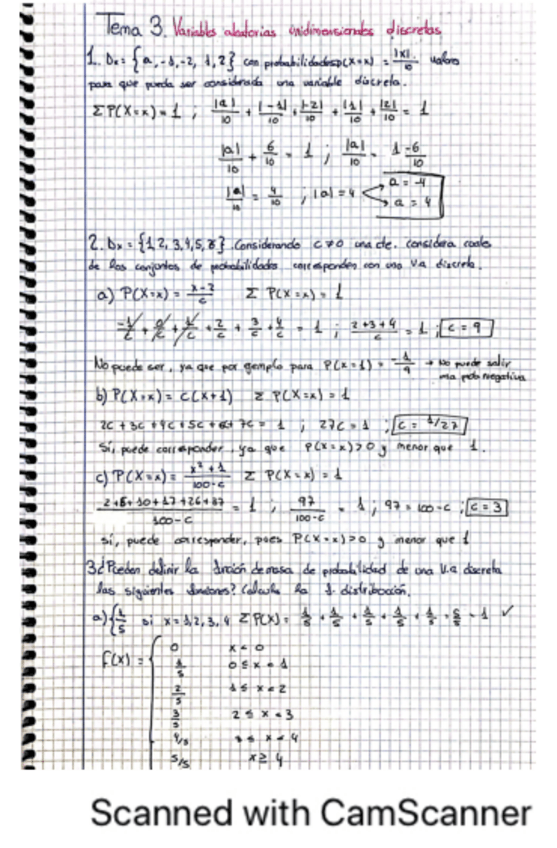 Tema 3. Variables aleatorias unidimensionales discretas
1. Dx = {a, -1, -2, 1, 2} con probabilidades P(X=x) = |x|/10 valores
para que pueda ser considerada una variable discreta.
ΣP(X=x) = 1 ; |a|/10 + |-1|/10 + |-2|/10 + |1|/10 + |2|/10 = 1
|a|/10 + 6/10 = 1 ; |a|/10 = 1-6/10
|a|/10 = 4/10 ; |a| = 4 a = -4
a = 4
2. Dx = {1, 2, 3, 4, 5, 6}. Considerando c≠0 una cte. considera cuales
de los conjuntos de probabilidades corresponden con una v.a discreta.
a) P(X=x) = x-2/c Σ P(X=x) = 1
-1/c + 0/c + 1/c + 2/c + 3/c + 4/c = 1 ; 2+3+4/c = 1 ; c = 9
No puede ser, ya que por ejemplo para P(x=1) = -1/9 → No puede salir
una prob negativa
b) P(X=x) = c(x+1) Σ P(X=x) = 1
2c + 3c + 4c + 5c + 6c + 7c = 1 ; 27c = 1 ; c = 1/27
Sí, puede corresponder, ya que P(X=x)>0 y menor que 1.
c) P(X=x) = x²+1/100-c Σ P(X=x) = 1
2+5+10+17+26+37/100-c = 1 ; 97/100-c = 1 ; 97 = 100-c ; c = 3
sí, puede corresponder, pues P(X=x)>0 y menor que 1
3. ¿Pueden definir la función de masa de probabilidad de una v.a discreta
las siguientes funciones? Calcula la f. distribución.
a) {1/5 si x = 1, 2, 3, 4 ΣP(X) = 1/5 + 1/5 + 1/5 + 1/5 + 1/5 = 5/5 = 1 ✓
0 x < 0
1/5 0 ≤ x < 1
F(x) = 2/5 1 ≤ x < 2
3/5 2 ≤ x < 3
4/5 3 ≤ x < 4
5/5 x ≥ 4
Scanned with CamScanner